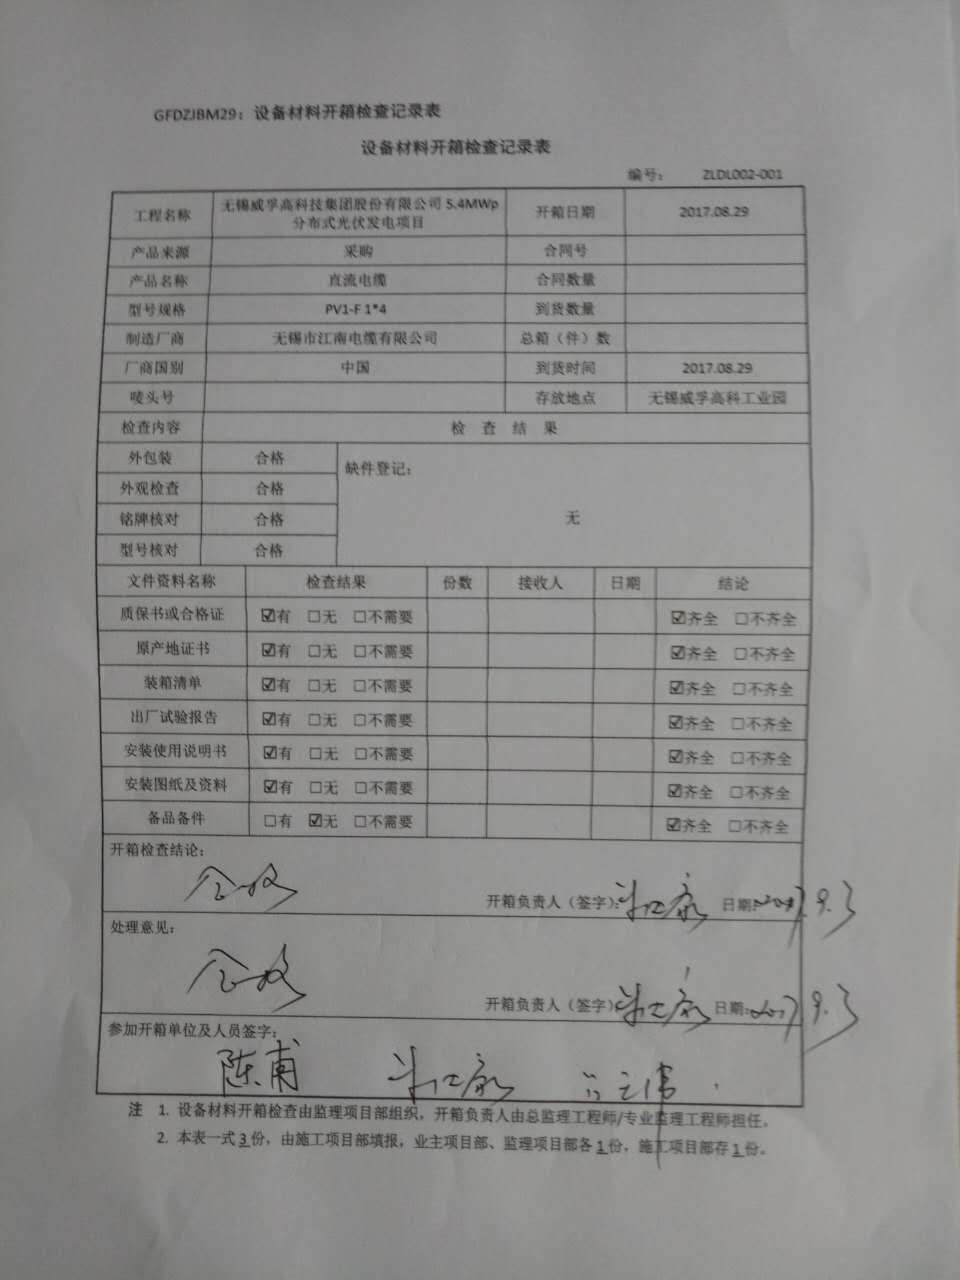 GFDZJBM29：设备材料开箱检查记录表
设备材料开箱检查记录表
编号： ZLDL002-001
工程名称 无锡威孚高科技集团股份有限公司 5.4MWp 分布式光伏发电项目 开箱日期 2017.08.29
产品来源 采购 合同号
产品名称 直流电缆 合同数量
型号规格 PV1-F 1*4 到货数量
制造厂商 无锡市江南电缆有限公司 总箱（件）数
厂商国别 中国 到货时间 2017.08.29
唛头号 存放地点 无锡威孚高科工业园
检查内容 检 查 结 果
外包装 合格 缺件登记：
外观检查 合格
铭牌核对 合格 无
型号核对 合格
文件资料名称 检查结果 份数 接收人 日期 结论
质保书或合格证 ☑有 □无 □不需要 ☑齐全 □不齐全
原产地证书 ☑有 □无 □不需要 ☑齐全 □不齐全
装箱清单 ☑有 □无 □不需要 ☑齐全 □不齐全
出厂试验报告 ☑有 □无 □不需要 ☑齐全 □不齐全
安装使用说明书 ☑有 □无 □不需要 ☑齐全 □不齐全
安装图纸及资料 ☑有 □无 □不需要 ☑齐全 □不齐全
备品备件 □有 ☑无 □不需要 ☑齐全 □不齐全
开箱检查结论：
合格
开箱负责人（签字）： 日期：2017.9.3
处理意见：
合格
开箱负责人（签字） 日期：2017.9.3
参加开箱单位及人员签字：
陈甫
注 1. 设备材料开箱检查由监理项目部组织，开箱负责人由总监理工程师/专业监理工程师担任。
2. 本表一式 3 份，由施工项目部填报，业主项目部、监理项目部各 1 份，施工项目部存 1 份。